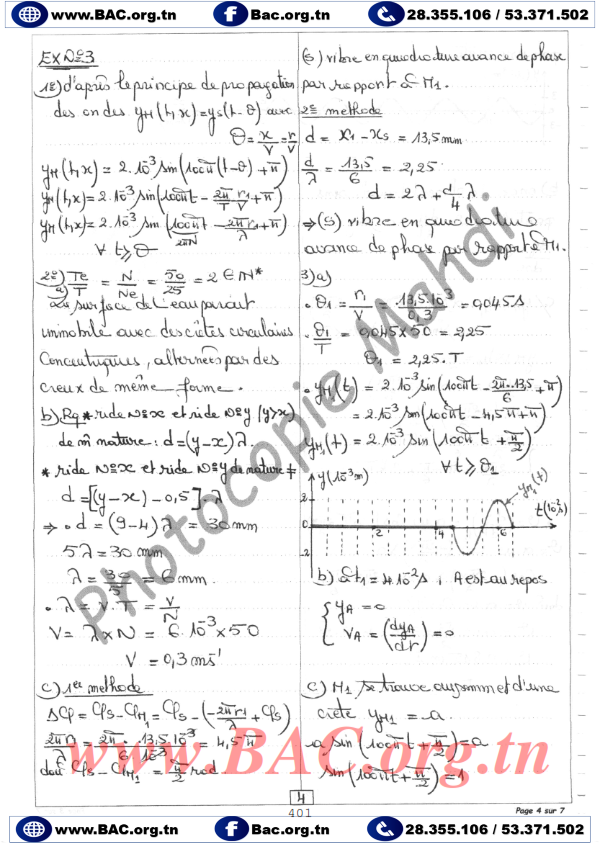 www.BAC.org.tn
Bac.org.tn
28.355.106 / 53.371.502
EX N°3
1°) d'après le principe de propagation
des ondes yM(t,x) = yS(t-θ) avec
θ = x/V = r/V
yM(t,x) = 2.10⁻³ sin(100π(t-θ)+π)
yM(t,x) = 2.10⁻³ sin(100πt - 2π/T r1/V + π)
yM(t,x) = 2.10⁻³ sin(100πt - 2πr1/λ + π)
2πN
∀ t ≥ θ
2°) a) Te/T = N/Ne = 50/25 = 2 ∈ N*
La surface de l'eau parait
immobile avec des crêtes circulaires
Concentriques, alternées par des
creux de même forme.
b) Rq * ride N°x et ride N°y (y>x)
de m̂ nature : d = (y-x)λ.
* ride N°x et ride N°y de nature ≠
d = [(y-x) - 0,5].λ
⇒ • d = (9-4)λ = 30 mm
5λ = 30 mm
λ = 30/5 = 6 mm.
• λ = V.T = V/N
V = λ×N = 6.10⁻³ × 50
V = 0,3 ms⁻¹
c) 1ère méthode
Δφ = φS - φM1 = φS - (-2πr1/λ + φS)
2πr1/λ = 2π/6.10⁻³ . 13,5.10⁻³ = 4,5π
d'où φS - φM1 = π/2 rad
(S) vibre en quadrature avance de phase
par rapport à M1.
2e méthode
d = x1 - xS = 13,5 mm
d/λ = 13,5/6 = 2,25
d = 2λ + 1/4 λ
⇒ (S) vibre en quadrature
avance de phase par rapport à M1.
3) a)
• θ1 = r1/V = 13,5.10⁻³/0,3 = 0,045 s
• θ1/T = 0,045×50 = 2,25
θ1 = 2,25.T
• yM1(t) = 2.10⁻³ sin(100πt - 2π.13,5/6 + π)
= 2.10⁻³ sin(100πt - 4,5π + π)
yM1(t) = 2.10⁻³ sin(100πt + π/2)
∀ t ≥ θ1
y(10⁻³m)
yM1(t)
t(10⁻²s)
2
0
2
4
6
-2
b) à t1 = 4.10⁻² s, A est au repos
{ yA = 0
VA = (dyA/dt) = 0
c) M1 se trouve au sommet d'une
crête yM1 = a.
a sin(100πt + π/2) = a
sin(100πt + π/2) = 1
Photocopie Mahdi
www.BAC.org.tn
4
401
Page 4 sur 7
www.BAC.org.tn
Bac.org.tn
28.355.106 / 53.371.502